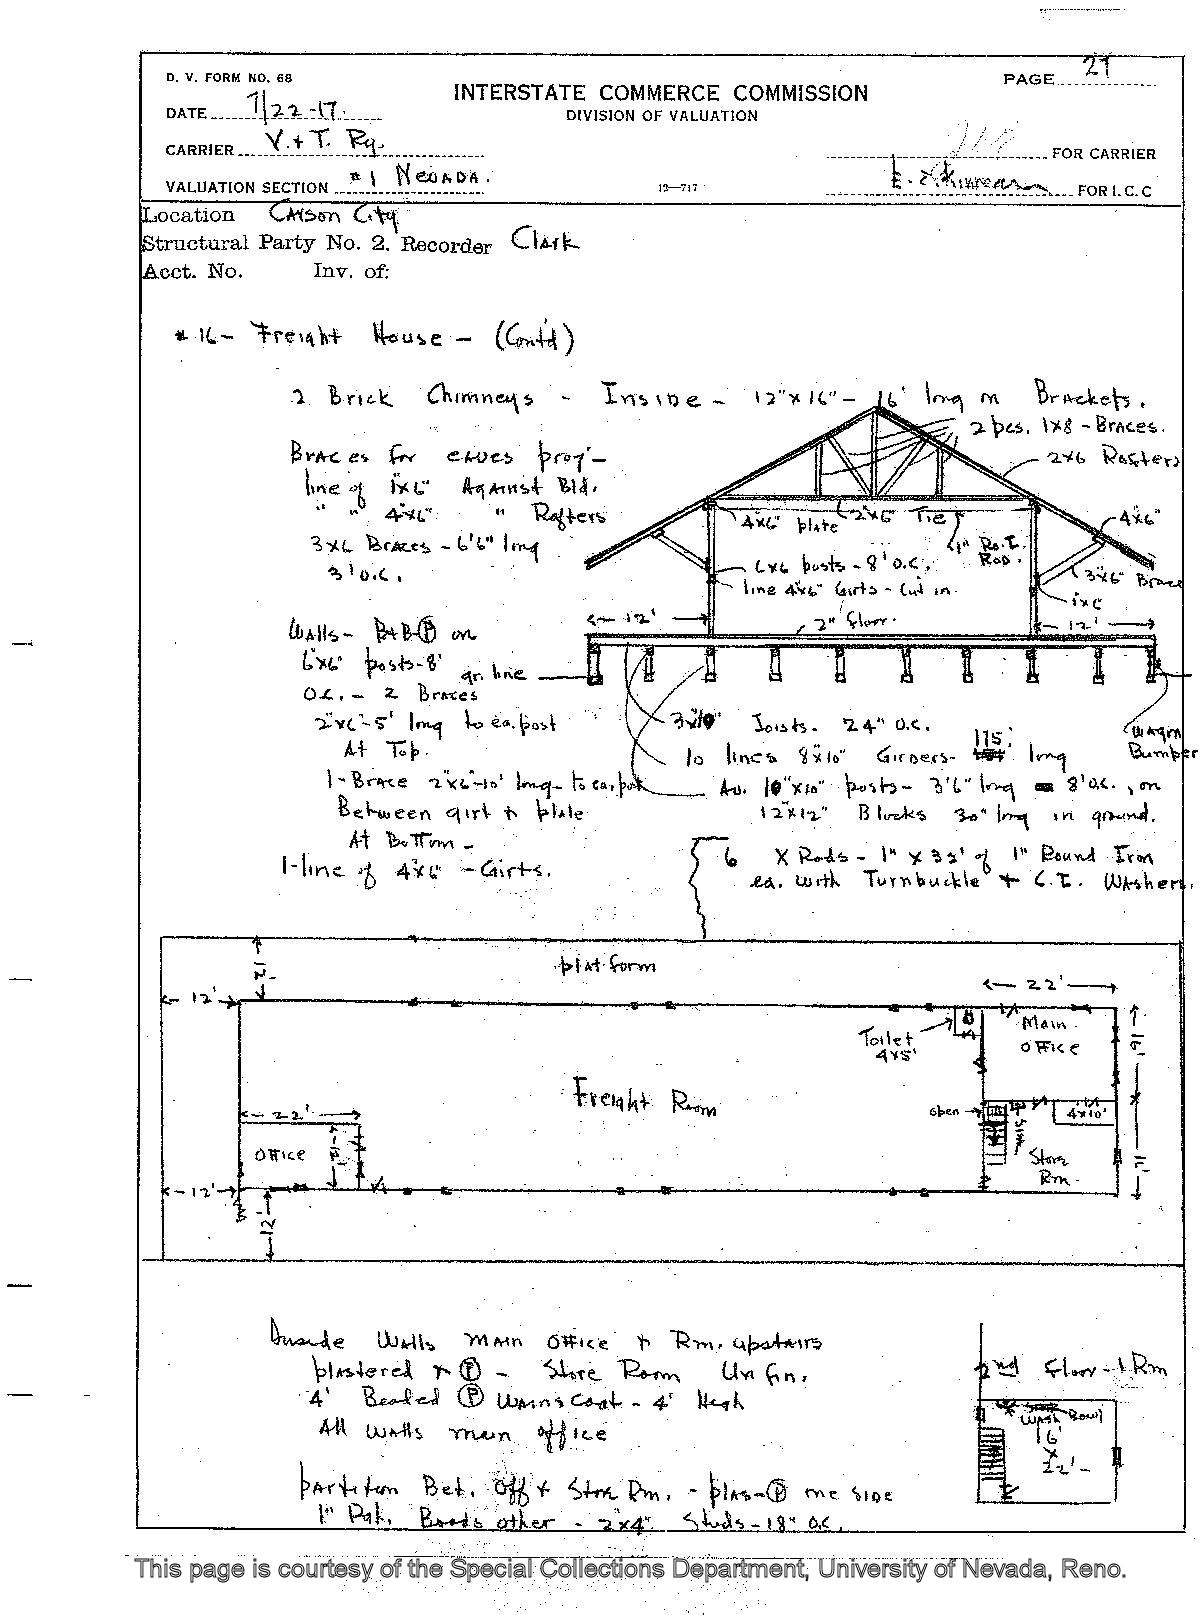 D. V. FORM NO. 68
PAGE 27
INTERSTATE COMMERCE COMMISSION
DIVISION OF VALUATION
DATE 7/22-17.
CARRIER V. + T. Ry.
FOR CARRIER
VALUATION SECTION #1 NEVADA.
12—717
FOR I. C. C
Location Carson City
Structural Party No. 2. Recorder Clark
Acct. No. Inv. of:
#16 - Freight House - (Cont'd)
2 Brick Chimneys - Inside - 12"x16" - 16' long on Brackets.
2 pcs. 1x8 - Braces.
2x6 Rafters
Braces for eaves proj -
line of 1x6" Against Bld.
" " 4"x6" " Rafters
3x6 Braces - 6'6" long
3' O.C.
4"x6" plate
2"x6" Tie
1" Ro. I. Rod.
4"x6"
6x6 posts - 8' O.C.
line 4"x6" Girts - Cut in.
3"x6" Brace
1x6
12'
2" floor.
12'
Walls - B+B Ⓟ on
6"x6" posts - 8'
O.C. - 2 Braces
2"x6" - 5' long to ea. post
At Top.
1 - Brace 2"x6" - 10' long - to ea. post
Between girt & plate
At Bottom -
1 - line of 4"x6" - Girts.
gr. line
3"x10" Joists. 24" O.C.
10 lines 8"x10" Girders - 175' long
Av. 10"x10" posts - 3'6" long - 8' O.C., on
12"x12" Blocks 30" long in ground.
Wagon
Bumper
6 X Rods - 1" x 32' of 1" Round Iron
ea. with Turnbuckle + C.I. Washers.
platform
12'
12'
22'
Toilet
4x5'
Main
Office
Freight Room
open
4x10'
22'
Office
Store
Rm.
12'
12'
Inside Walls Main Office + Rm. upstairs
plastered + Ⓟ - Store Room Unfin.
4' Beaded Ⓟ Wainscoat - 4' High
All Walls main office
partition Bet. Off + Store Rm. - plas - Ⓟ one side
1" Boards other - 2"x4" Studs - 18" O.C.
2nd Floor - 1 Rm
Wash Bowl
16'
x
22' -
This page is courtesy of the Special Collections Department, University of Nevada, Reno.